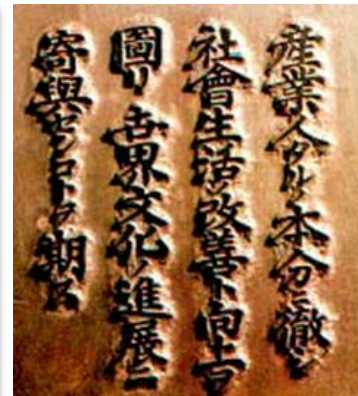 産業人タルノ本分ニ徹シ
社會生活ノ改善ト向上ヲ
圖リ世界文化ノ進展ニ
寄與センコトヲ期ス